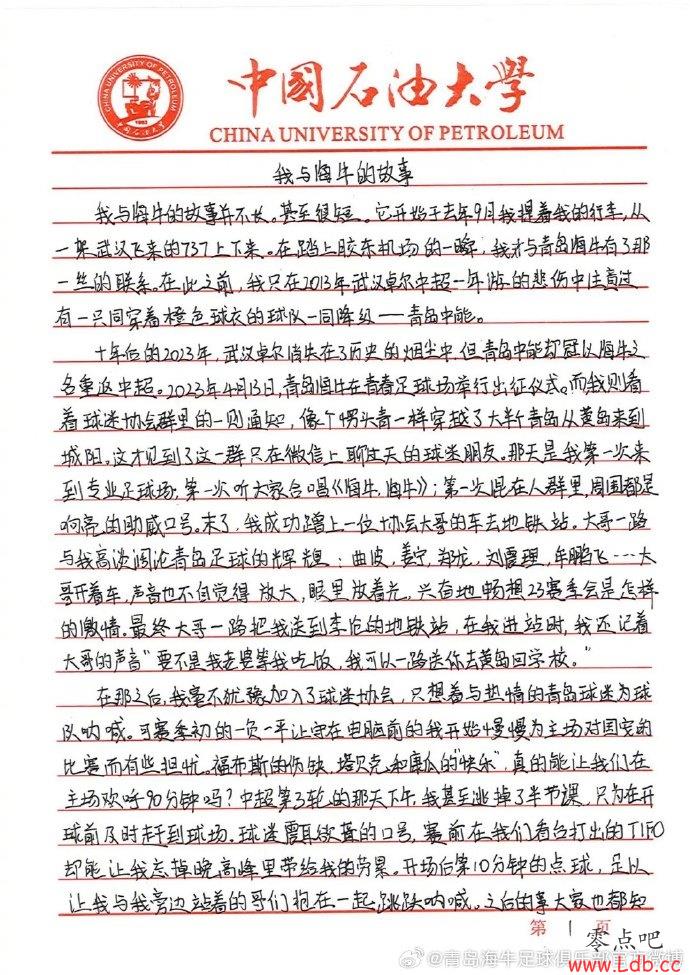 中國石油大學
CHINA UNIVERSITY OF PETROLEUM
CHINA UNIVERSITY OF PETROLEUM
中国石油大学
1953
我与海牛的故事
我与海牛的故事并不长。甚至很短。它开始于去年9月我提着我的行李,从
一架武汉飞来的737上下来。在踏上胶东机场的一瞬,我才与青岛海牛有了那
一丝的联系。在此之前,我只在2013年武汉卓尔中超一年游的悲伤中注意过
有一只同穿着橙色球衣的球队一同降级——青岛中能。
十年后的2023年,武汉卓尔消失在了历史的烟尘中,但青岛中能却冠以海牛之
名重返中超。2023年4月13日,青岛海牛在青春足球场举行出征仪式。而我则看
着球迷协会群里的一则通知,像个愣头青一样穿越了大半个青岛从黄岛来到
城阳。这才见到了这一群只在微信上聊过天的球迷朋友。那天是我第一次来
到专业足球场;第一次听大家合唱《海牛,海牛》;第一次混在人群里,周围都是
响亮的助威口号。末了,我成功蹭上一位协会大哥的车去地铁站。大哥一路
与我高谈阔论青岛足球的辉煌:曲波,姜宁,郑龙,刘震理,牟鹏飞……大
哥开着车,声音也不自觉得放大,眼里放着光,兴奋地畅想23赛季会是怎样
的激情。最终大哥一路把我送到李沧的地铁站,在我进站时,我还记着
大哥的声音“要不是我老婆等我吃饭,我可以一路送你去黄岛回学校。”
在那之后,我毫不犹豫加入了球迷协会,只想着与热情的青岛球迷为球
队呐喊。可赛季初的一负一平让守在电脑前的我开始慢慢为主场对国安的
比赛而有些担忧。福布斯的伤缺,塔贝克和康瓜的“快乐”,真的能让我们在
主场欢呼90分钟吗?中超第3轮的那天下午,我甚至逃掉了半节课,只为在开
球前及时赶到球场。球迷震耳欲聋的口号,赛前在我们看台打出的TIFO
却能让我忘掉晚高峰里带给我的劳累。开场后第10分钟的点球,足以
让我与我旁边站着的哥们抱在一起,跳跃呐喊。之后的事大家也都知
第1页
@青岛海牛足球俱乐部官方微博
零点吧
www.Ldb.cc